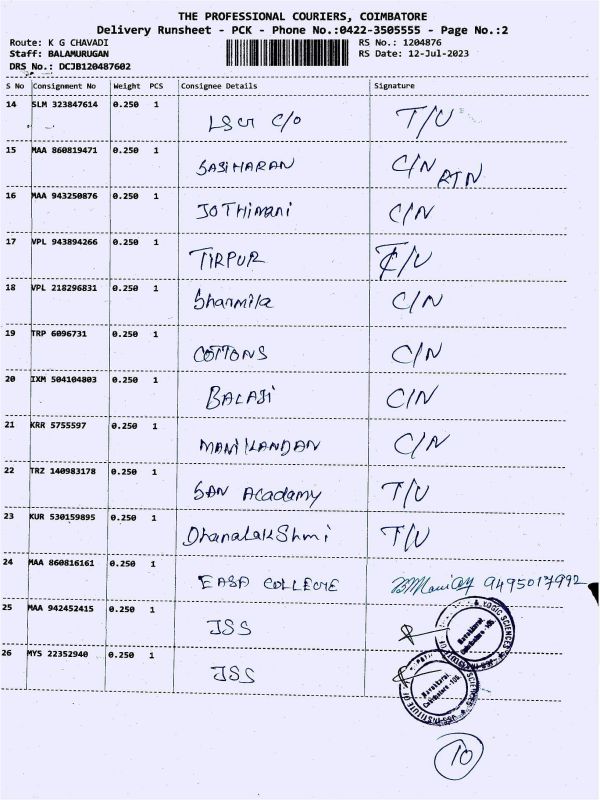 THE PROFESSIONAL COURIERS, COIMBATORE
Delivery Runsheet - PCK - Phone No.:0422-3505555 - Page No.:2
Route: K G CHAVADI RS No.: 1204876
Staff: BALAMURUGAN RS Date: 12-Jul-2023
DRS No.: DCJB120487602
S No Consignment No Weight PCS Consignee Details Signature
14 SLM 323847614 0.250 1 C/O T/U
15 MAA 860819471 0.250 1 SASIHARAN C/N RTN
16 MAA 943250876 0.250 1 JOTHimani C/N
17 VPL 943894266 0.250 1 TIRPUR T/U
18 VPL 218296831 0.250 1 Sharmila C/N
19 TRP 6096731 0.250 1 COTTONS C/N
20 IXM 504104803 0.250 1 BALAJI C/N
21 KRR 5755597 0.250 1 MANIKANDAN C/N
22 TRZ 140983178 0.250 1 SAN Acadamy T/U
23 KUR 530159895 0.250 1 DhanaLakShmi T/U
24 MAA 860816161 0.250 1 EASA COLLEGE 9495017992
25 MAA 942452415 0.250 1 JSS
26 MYS 22352940 0.250 1 JSS
Navakkarai
Coimbatore -105.
Navakkarai
Coimbatore -105.
10